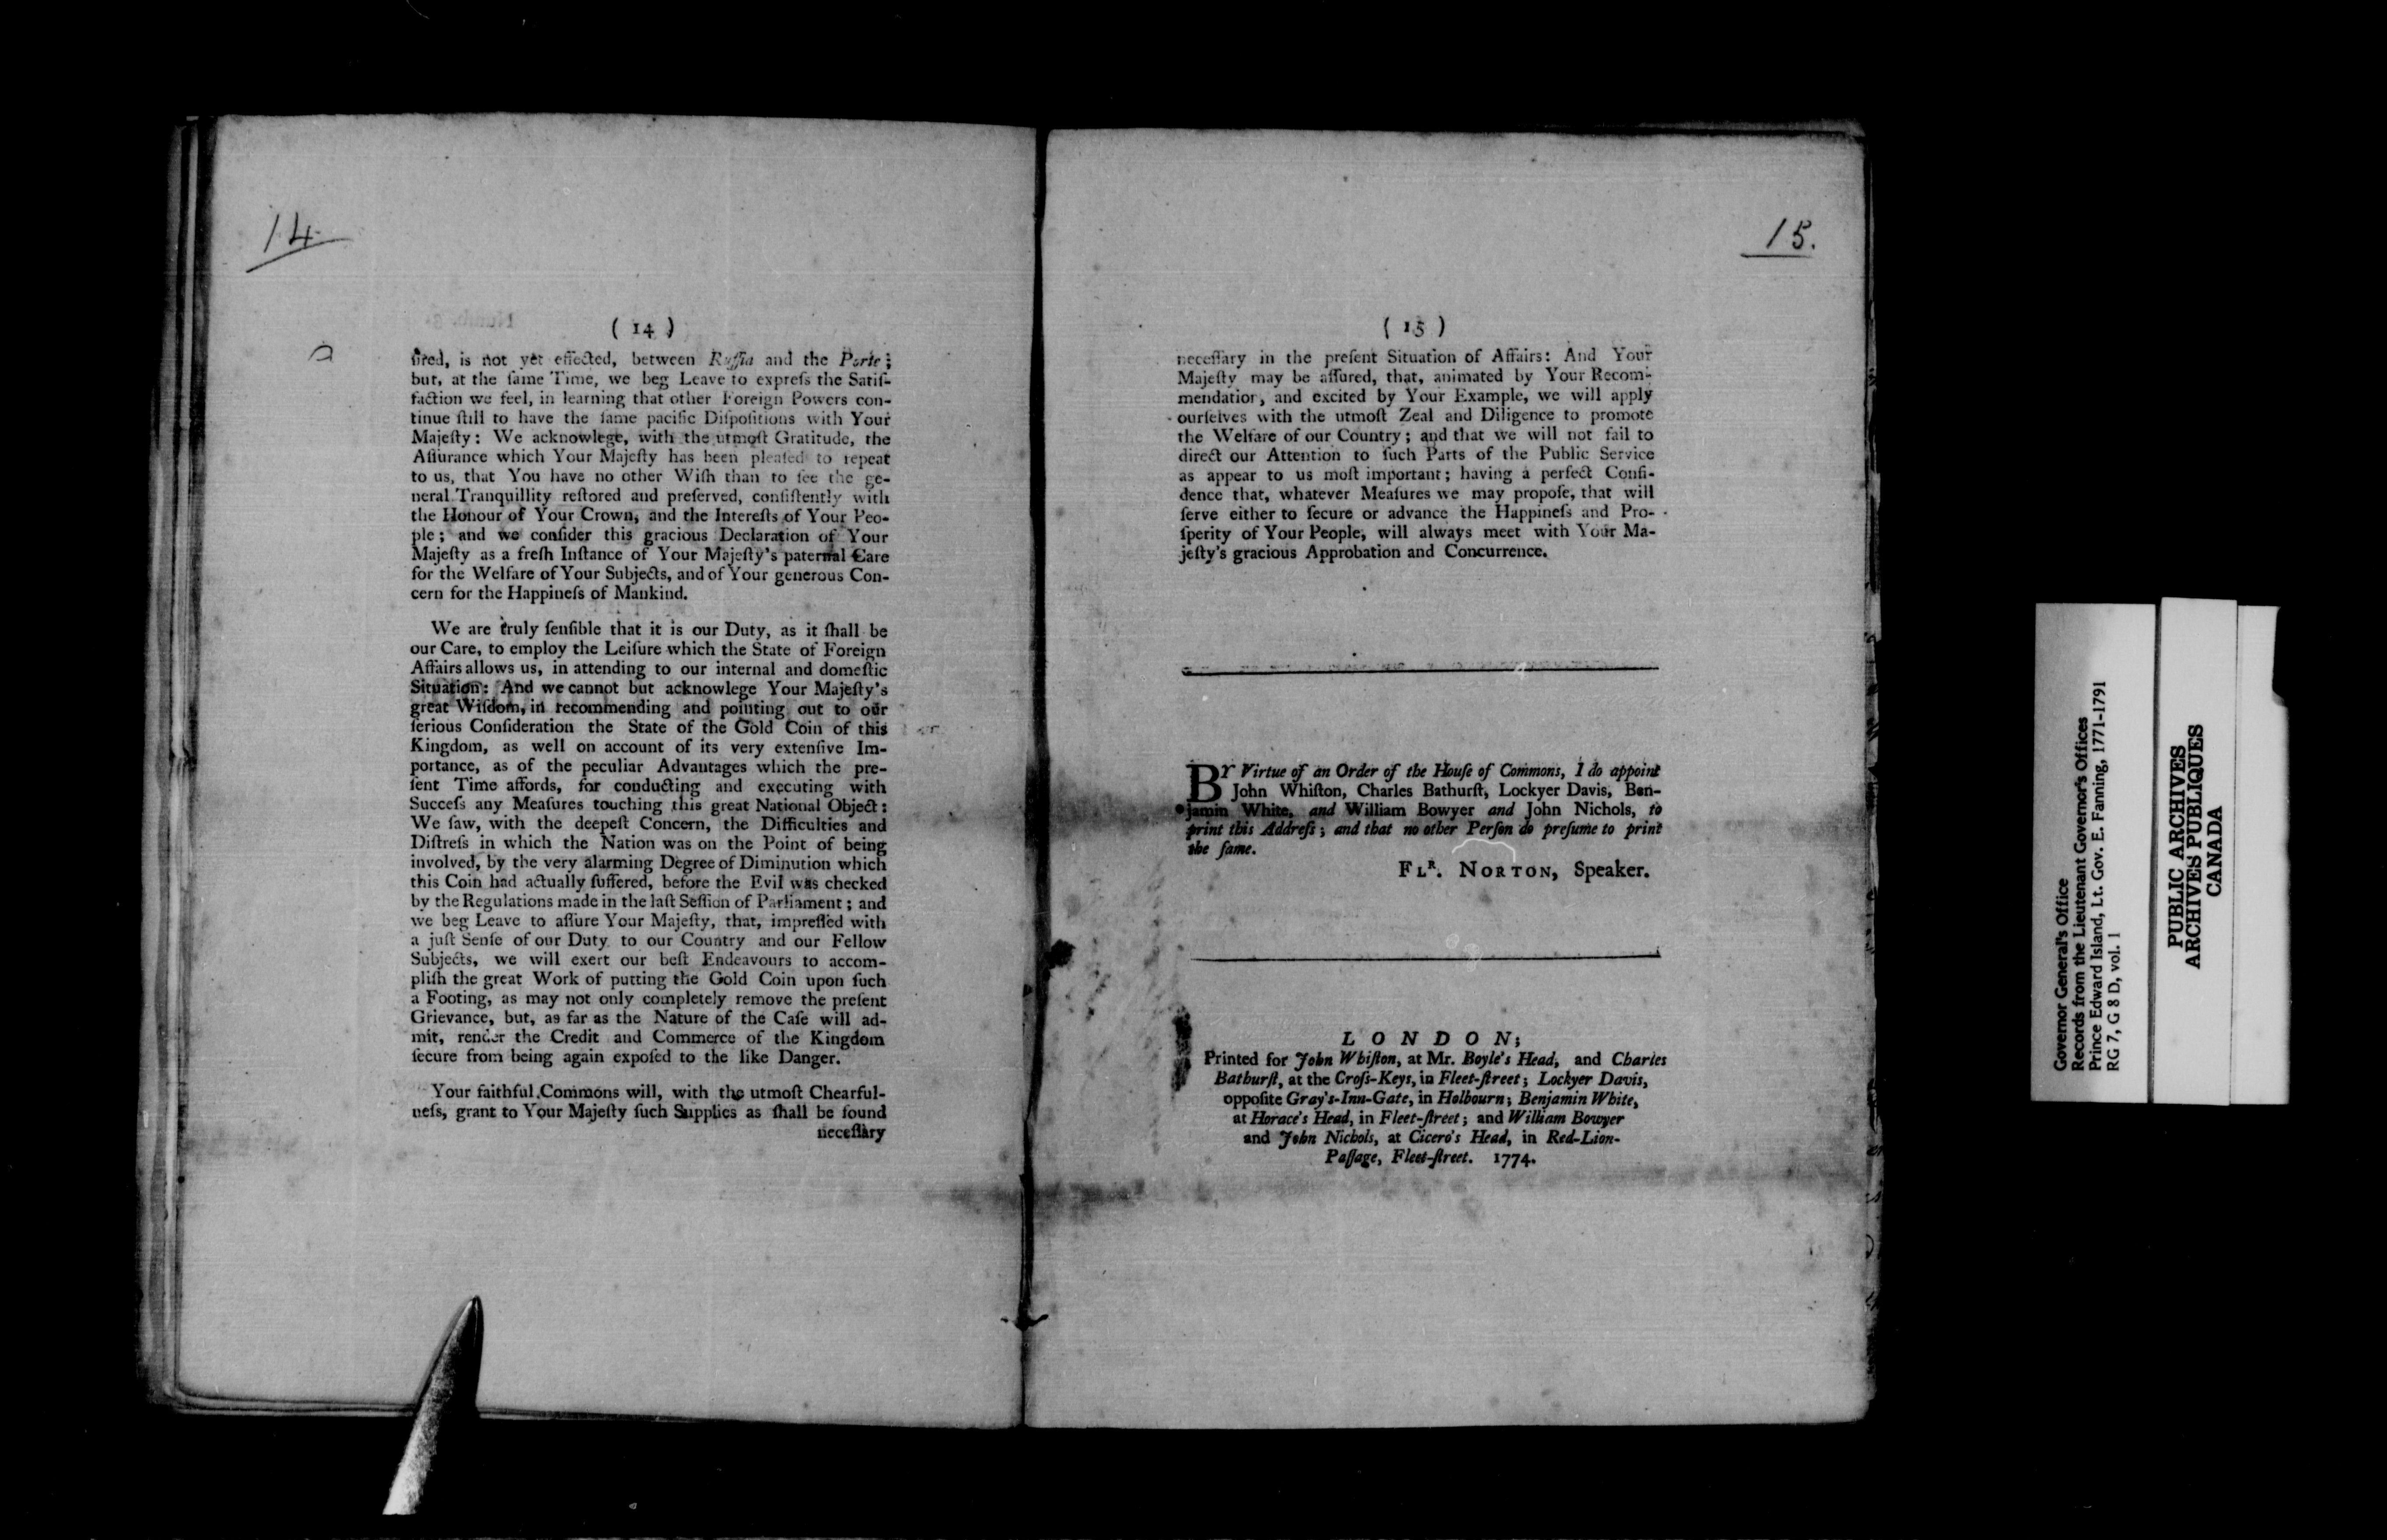 14
( 14 )
ſired, is not yet effected, between Ruſſia and the Porte;
but, at the ſame Time, we beg Leave to expreſs the Satiſ-
faction we feel, in learning that other Foreign Powers con-
tinue ſtill to have the ſame pacific Diſpoſitions with Your
Majeſty: We acknowlege, with the utmoſt Gratitude, the
Aſſurance which Your Majeſty has been pleaſed to repeat
to us, that You have no other Wiſh than to ſee the ge-
neral Tranquillity reſtored and preſerved, conſiſtently with
the Honour of Your Crown, and the Intereſts of Your Peo-
ple; and we conſider this gracious Declaration of Your
Majeſty as a freſh Inſtance of Your Majeſty's paternal Care
for the Welfare of Your Subjects, and of Your generous Con-
cern for the Happineſs of Mankind.
We are truly ſenſible that it is our Duty, as it ſhall be
our Care, to employ the Leiſure which the State of Foreign
Affairs allows us, in attending to our internal and domeſtic
Situation: And we cannot but acknowlege Your Majeſty's
great Wiſdom, in recommending and pointing out to our
ſerious Conſideration the State of the Gold Coin of this
Kingdom, as well on account of its very extenſive Im-
portance, as of the peculiar Advantages which the pre-
ſent Time affords, for conducting and executing with
Succeſs any Meaſures touching this great National Object:
We ſaw, with the deepeſt Concern, the Difficulties and
Diſtreſs in which the Nation was on the Point of being
involved, by the very alarming Degree of Diminution which
this Coin had actually ſuffered, before the Evil was checked
by the Regulations made in the laſt Seſſion of Parliament; and
we beg Leave to aſſure Your Majeſty, that, impreſſed with
a juſt Senſe of our Duty to our Country and our Fellow
Subjects, we will exert our beſt Endeavours to accom-
pliſh the great Work of putting the Gold Coin upon ſuch
a Footing, as may not only completely remove the preſent
Grievance, but, as far as the Nature of the Caſe will ad-
mit, render the Credit and Commerce of the Kingdom
ſecure from being again expoſed to the like Danger.
Your faithful Commons will, with the utmoſt Chearful-
neſs, grant to Your Majeſty ſuch Supplies as ſhall be found
neceſſary
15.
( 15 )
neceſſary in the preſent Situation of Affairs: And Your
Majeſty may be aſſured, that, animated by Your Recom-
mendation, and excited by Your Example, we will apply
ourſelves with the utmoſt Zeal and Diligence to promote
the Welfare of our Country; and that we will not fail to
direct our Attention to ſuch Parts of the Public Service
as appear to us moſt important; having a perfect Confi-
dence that, whatever Meaſures we may propoſe, that will
ſerve either to ſecure or advance the Happineſs and Pro-
ſperity of Your People, will always meet with Your Ma-
jeſty's gracious Approbation and Concurrence.
BY Virtue of an Order of the Houſe of Commons, I do appoint
John Whiſton, Charles Bathurſt, Lockyer Davis, Ben-
jamin White, and William Bowyer and John Nichols, to
print this Addreſs; and that no other Perſon do preſume to print
the ſame.
FLR. NORTON, Speaker.
LONDON;
Printed for John Whiſton, at Mr. Boyle's Head, and Charles
Bathurſt, at the Croſs-Keys, in Fleet-ſtreet; Lockyer Davis,
oppoſite Gray's-Inn-Gate, in Holbourn; Benjamin White,
at Horace's Head, in Fleet-ſtreet; and William Bowyer
and John Nichols, at Cicero's Head, in Red-Lion-
Paſſage, Fleet-ſtreet. 1774.
Governor General's Office
Records from the Lieutenant Governor's Offices
Prince Edward Island, Lt. Gov. E. Fanning, 1771-1791
RG 7, G 8 D, vol. 1
PUBLIC ARCHIVES
ARCHIVES PUBLIQUES
CANADA